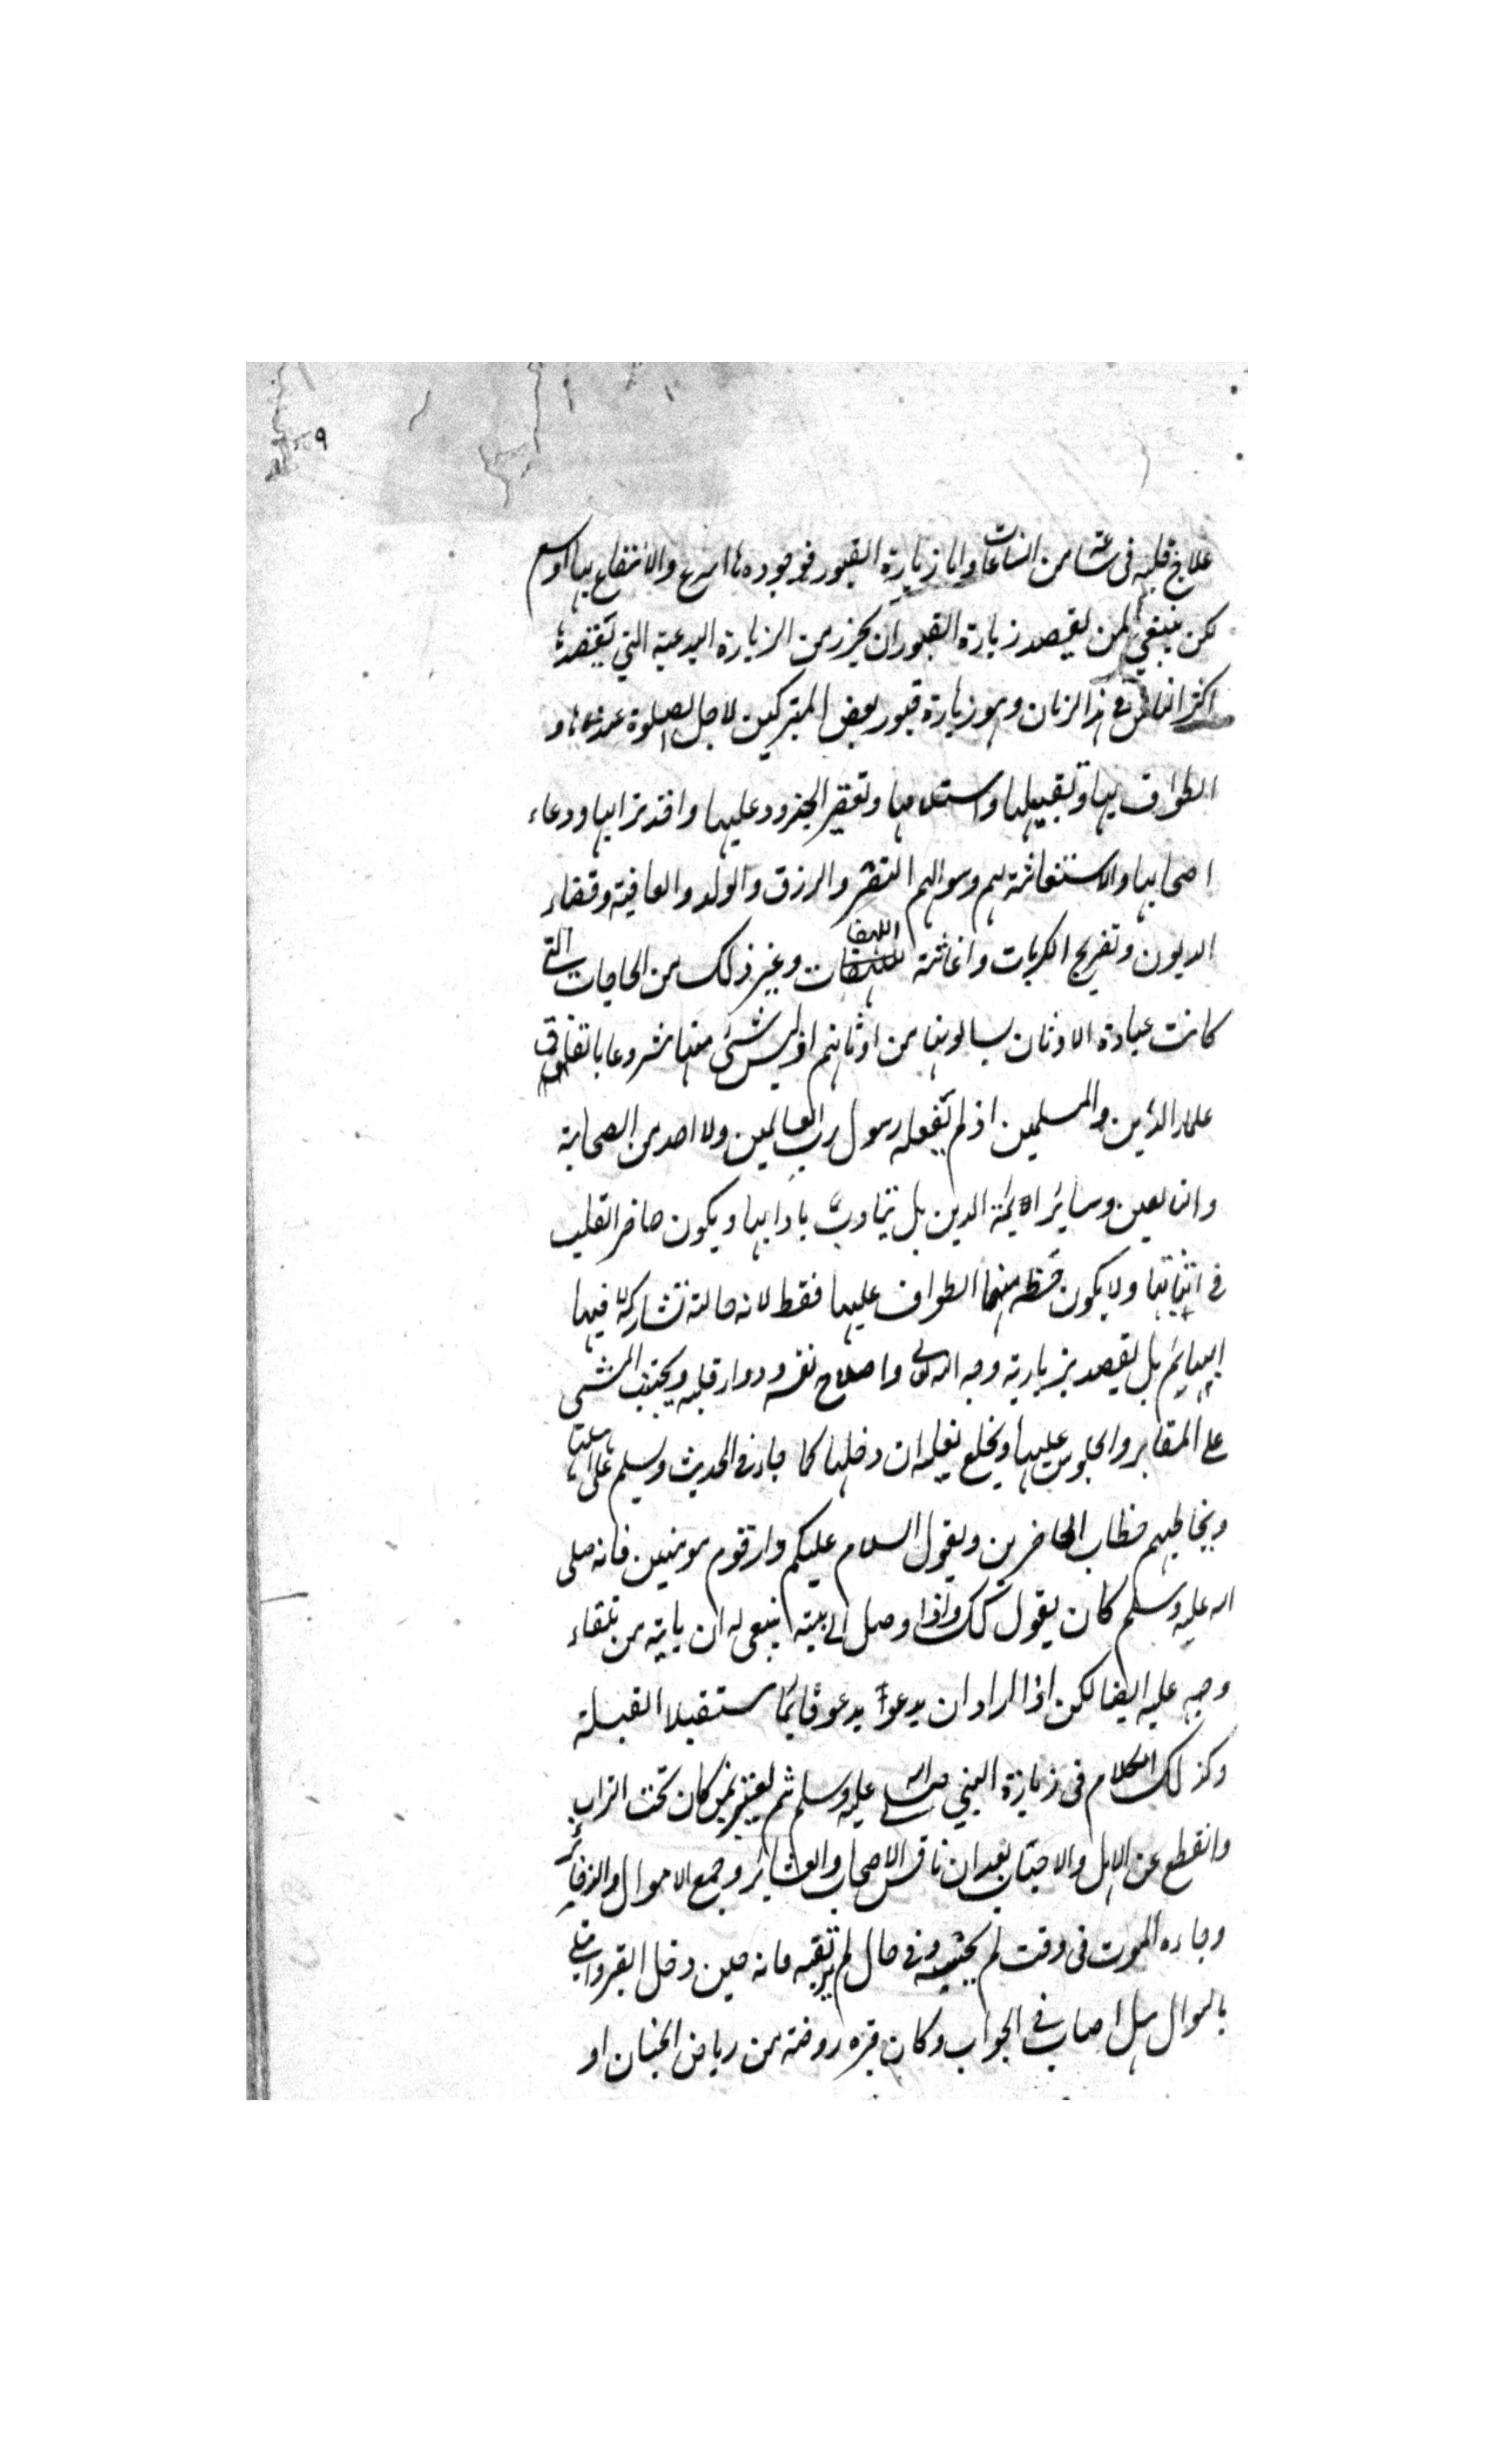 ٩
علاج قلبه في ساعة من الساعات واما زيارة القبور فوجودها اسرع والانتفاع بها اوسع
لكن ينبغي لمن يقصد زيارة القبور ان يحزر من الزيارة البدعية التي يقصدها
اكثر الناس في هذا الزمان وهو زيارة قبور بعض المتبركين لاجل الصلوة عندها و
الطواف بها وتقبيلها واستلامها وتعفير الخدود عليها واخذ ترابها ودعاء
اصحابها والاستغاثة بهم وسوالهم النصر والرزق والولد والعافية وقضاء
الديون وتفريج الكربات واغاثة اللهفات وغير ذلك من الحاجات التي
كانت عبادة الاوثان يسالونها من اوثانهم اذ ليس شئ منها مشروعا باتفاق
علماء الدين والمسلمين اذ لم يفعله رسول رب العالمين ولا احد من الصحابة
والتابعين وسائر ائمة الدين بل يتادب بادابها ويكون حاضر القلب
في اتيانها ولا يكون حظه منها الطواف عليها فقط لانه حالة تشاركه فيها
البهايم بل يقصد بزيارته وجه الله تعالى واصلاح نفسه ودواء قلبه ويجتنب المشي
على المقابر والجلوس عليها ويخلع نعليه ان دخلها كما جاء في الحديث ويسلم على اهلها
ويخاطبهم خطاب الحاضرين ويقول السلام عليكم دار قوم مومنين فانه صلى
الله عليه وسلم كان يقول كك واذا وصل الى ميته ينبغي له ان ياتيه من تلقاء
وجهه عليه ايضا لكن اذا اراد ان يدعو يدعو قائما مستقبلا القبلة
وكذلك الكلام في زيارة النبي صلى الله عليه وسلم ثم يعتبر بمن كان تحت التراب
وانقطع عن الاهل والاحباب بعد ان نافس الاصحاب والعشائر وجمع الاموال والذخائر
وجاءه الموت في وقت لم يحتسبه وفي حال لم يرتقبه فانه حين دخل القبر وابتلي
بالسوال هل اصاب في الجواب وكان قبره روضة من رياض الجنان او